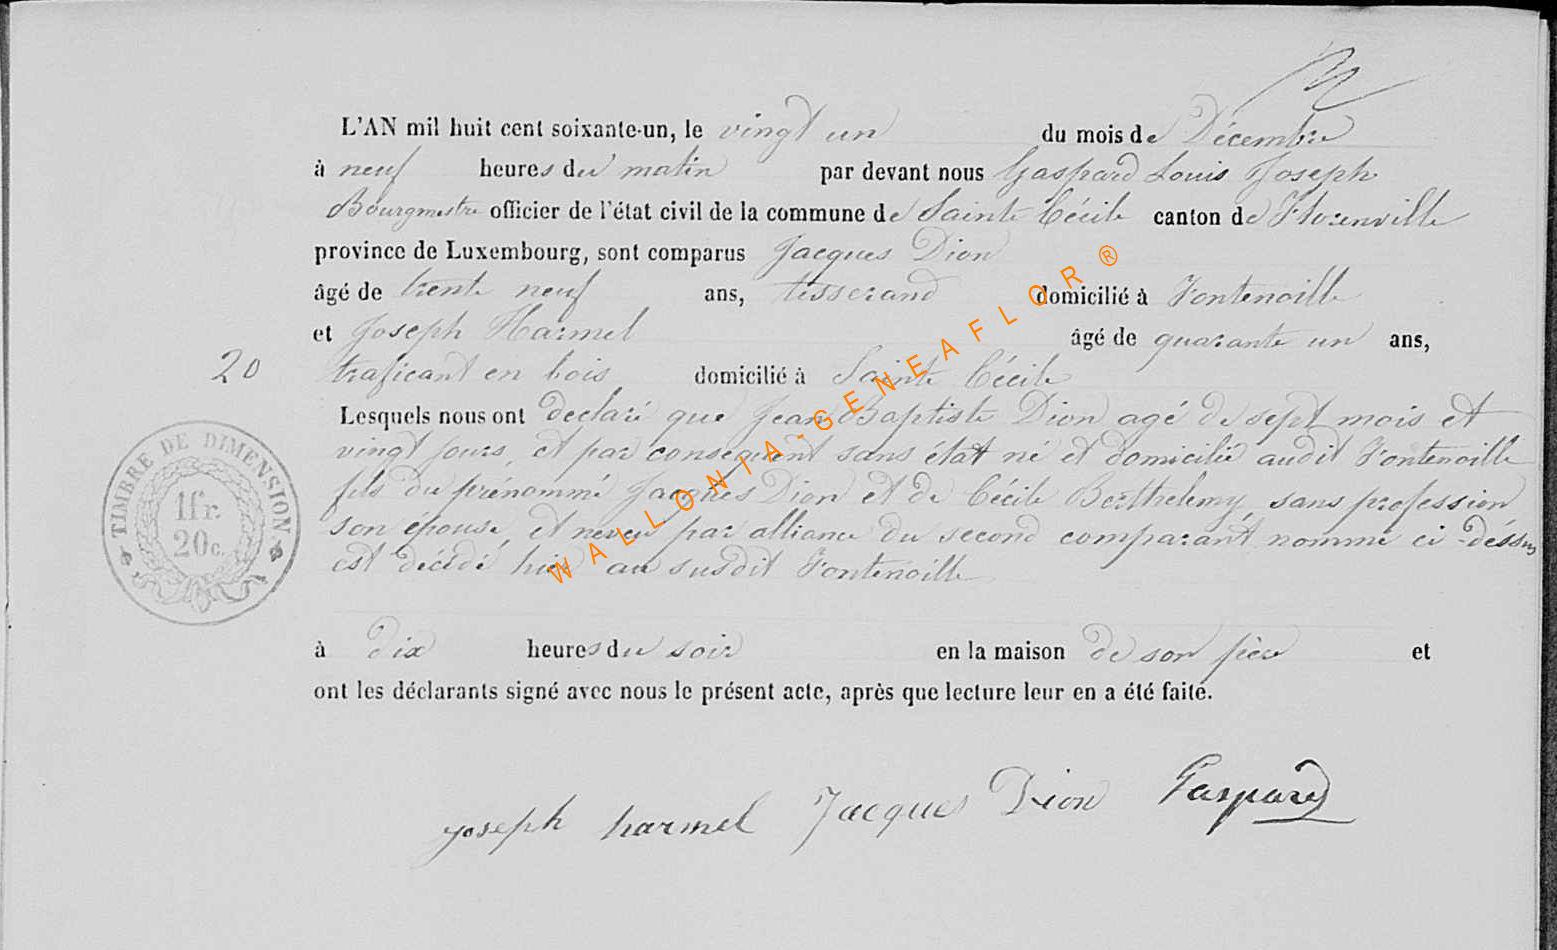 L'AN mil huit cent soixante-un, le vingt un du mois de Décembre
à neuf heures du matin par devant nous Gaspard Louis Joseph
Bourgmestre officier de l'état civil de la commune de Sainte Cécile canton de Florenville
province de Luxembourg, sont comparus Jacques Dion
âgé de trente neuf ans, tisserand domicilié à Fontenoille
et Joseph Harmel âgé de quarante un ans,
20 traficant en bois domicilié à Sainte Cécile
Lesquels nous ont declaré que Jean Baptiste Dion agé de sept mois et
vingt jours, et par consequent sans état né et domicilié audit Fontenoille
fils du prénommé Jacques Dion et de Cécile Berthelemy, sans profession
son épouse, et neveu par alliance du second comparant nommé ci-déssus
est décédé hier au susdit Fontenoille
à dix heures du soir en la maison de son père et
ont les déclarants signé avec nous le présent acte, après que lecture leur en a été faite.
joseph harmel Jacques Dion Gaspard
TIMBRE DE DIMENSION
1 fr.
20 c.
WALLONIA-GENEAFLOR ®